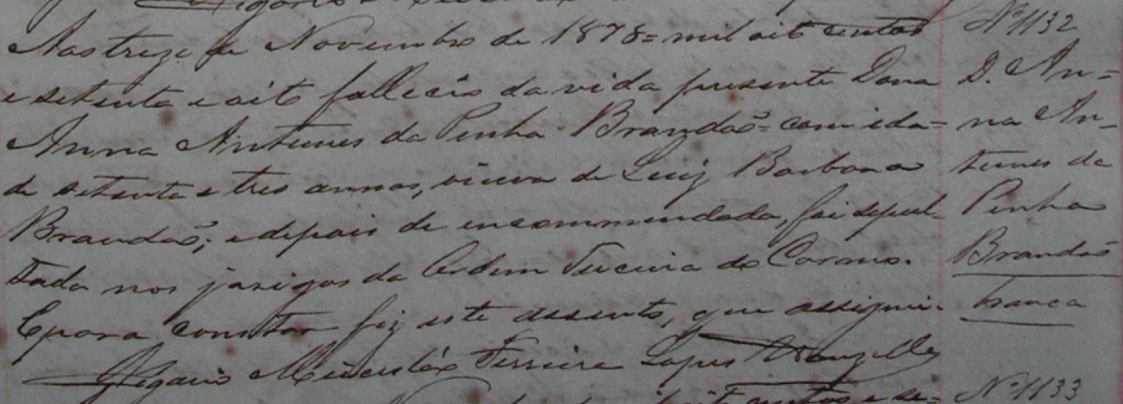 Aos treze de Novembro de 1878= mil oito centos
e setenta e oito falleceo da vida presente Dona
Anna Antunes da Penha Brandaõ= com ida=
de setenta e tres annos, viuva de Luiz Barbosa
Brandaõ; e depois de encommendada, foi sepul-
tada nos jazigos da Ordem Terceira do Carmo.
E para constar fiz este assento, que assignei.
Vigario Ferreira Lopes
Nº 1132
D. An=
na An-
tunes da
Penha
Brandaõ
branca
Nº 1133